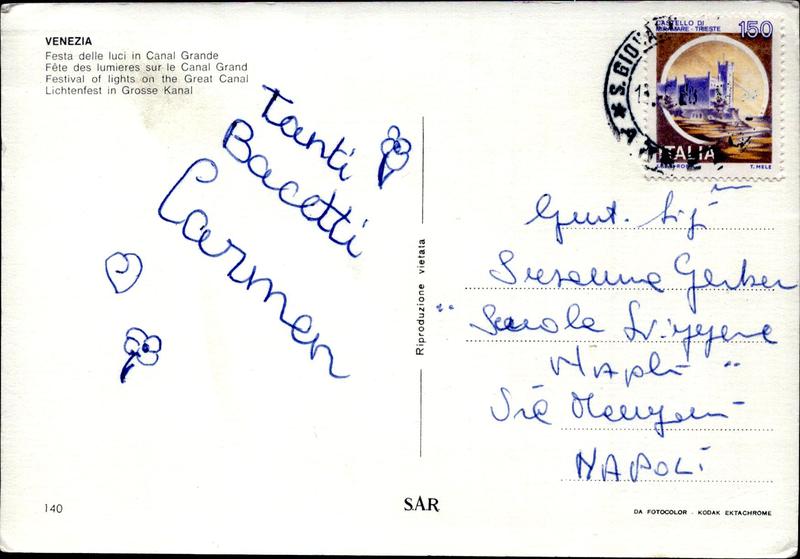 VENEZIA
Festa delle luci in Canal Grande
Fête des lumieres sur le Canal Grand
Festival of lights on the Great Canal
Lichtenfest in Grosse Kanal
Tanti
Bacetti
Carmen
140
Riproduzione vietata
SAR
CASTELLO DI
MIRAMARE - TRIESTE
150
ITALIA
T. MELE
* S. GIOVA
Gent. Sig
Susanna Gerber
"Scuola Svizzera
Napoli"
Via
NAPOLI
DA FOTOCOLOR - KODAK EKTACHROME